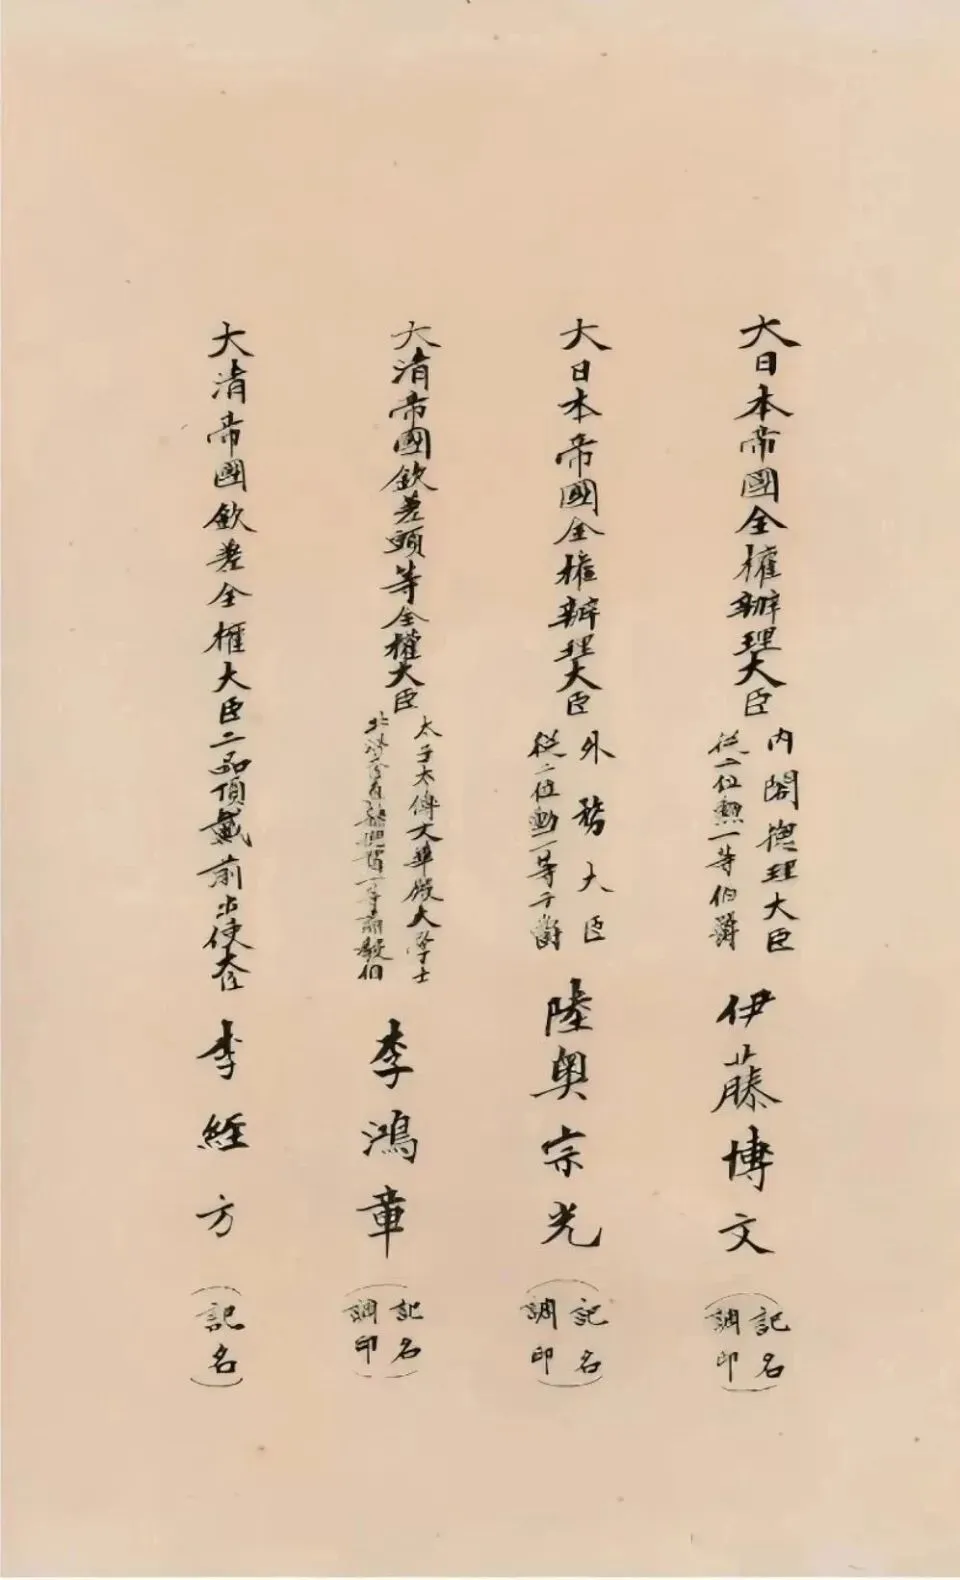 大日本帝國全權辦理大臣
內閣總理大臣
從二位勲一等伯爵
伊藤博文
記名
調印
大日本帝國全權辦理大臣
外務大臣
從二位勲一等子爵
陸奧宗光
記名
調印
大清帝國欽差頭等全權大臣
太子太傅文華殿大學士
北洋大臣直隸總督一等肅毅伯
李鴻章
記名
調印
大清帝國欽差全權大臣二品頂戴前出使大臣
李經方
(記名)